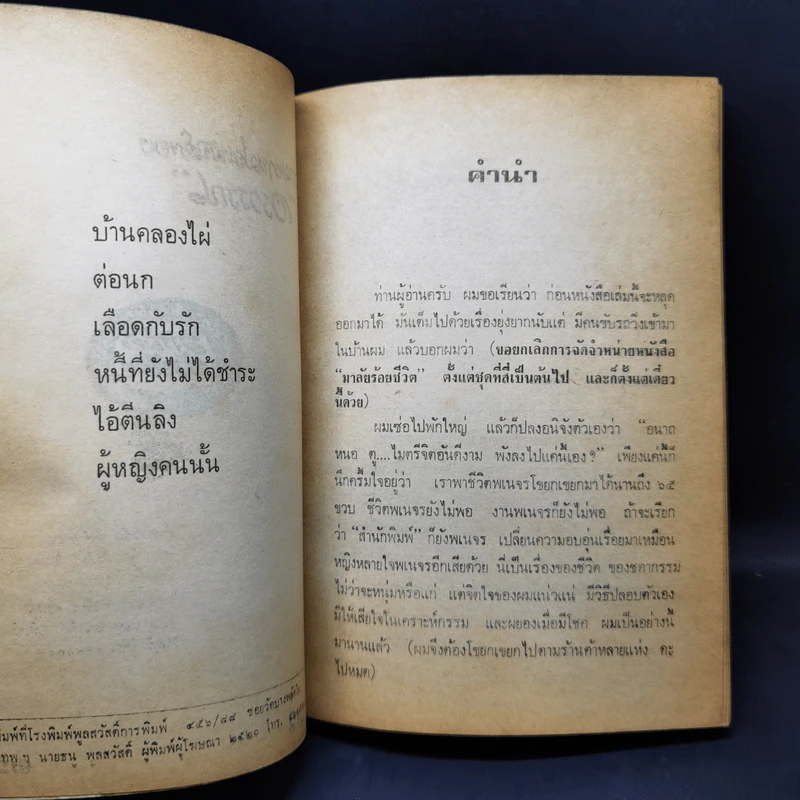 บ้านคลองไผ่
ต่อนก
เลือดกับรัก
หนี้ที่ยังไม่ได้ชำระ
ไอ้ตีนลิง
ผู้หญิงคนนั้น
พิมพ์ที่โรงพิมพ์พูลสวัสดิ์การพิมพ์ ๔๕๖/๘๘
นายธนู พูลสวัสดิ์ ผู้พิมพ์ผู้โฆษณา ๒๕๒๐ โทร.
คำนำ
ท่านผู้อ่านครับ ผมขอเรียนว่า ก่อนหนังสือเล่มนี้จะหลุด
ออกมาได้ มันเต็มไปด้วยเรื่องยุ่งยากนับแต่ มีคนขับรถวิ่งเข้ามา
ในบ้านผม แล้วบอกผมว่า (ขอยกเลิกการจัดจำหน่ายหนังสือ
“มาลัยร้อยชีวิต” ตั้งแต่ชุดที่สี่เป็นต้นไป และก็ตั้งแต่เดี๋ยว
นี้ด้วย)
ผมเซ่อไปพักใหญ่ แล้วก็ปลงอนิจจังตัวเองว่า “อนาถ
หนอ ตู....ไมตรีจิตอันดีงาม พังลงไปแค่นี้เอง?” เพียงแค่นี้ก็
นึกครึ้มใจอยู่ว่า เราพาชีวิตพเนจรโขยกเขยกมาได้นานถึง ๖๕
ขวบ ชีวิตพเนจรยังไม่พอ งานพเนจรก็ยังไม่พอ ถ้าจะเรียก
ว่า “สำนักพิมพ์” ก็ยังพเนจร เปลี่ยนความอบอุ่นเรื่อยมาเหมือน
หญิงหลายใจพเนจรอีกเสียด้วย นี่เป็นเรื่องของชีวิต ของชตากรรม
ไม่ว่าจะหนุ่มหรือแก่ แต่จิตใจของผมแน่วแน่ มีวิธีปลอบตัวเอง
มิให้เสียใจในเคราะห์กรรม และผยองเมื่อมีโชค ผมเป็นอย่างนี้
มานานแล้ว (ผมจึงต้องโขยกเขยกไปตามร้านค้าหลายแห่ง ตะ
ไปหมด)